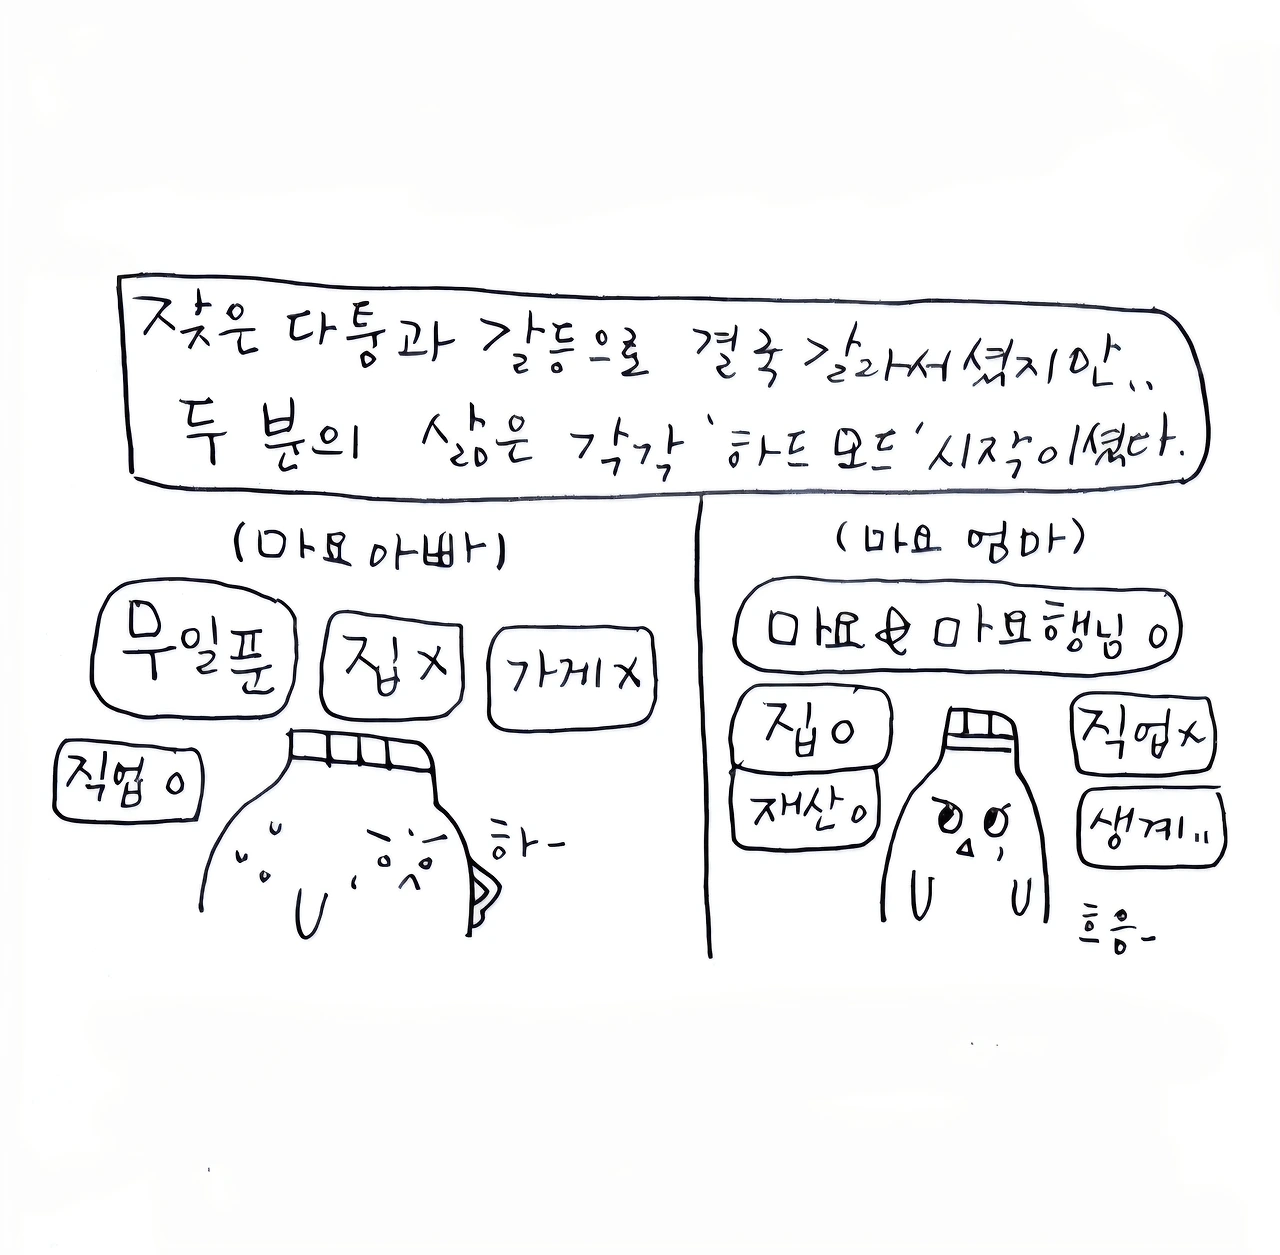 잦은 다툼과 갈등으로 결국 갈라서셨지만..
두 분의 삶은 각각 '하드 모드' 시작이셨다.
(마요 아빠)
무일푼
집 X
가게 X
직업 O
하-
(마요 엄마)
마요 & 마요행님 O
집 O
재산 O
직업 X
생계..
흐음-